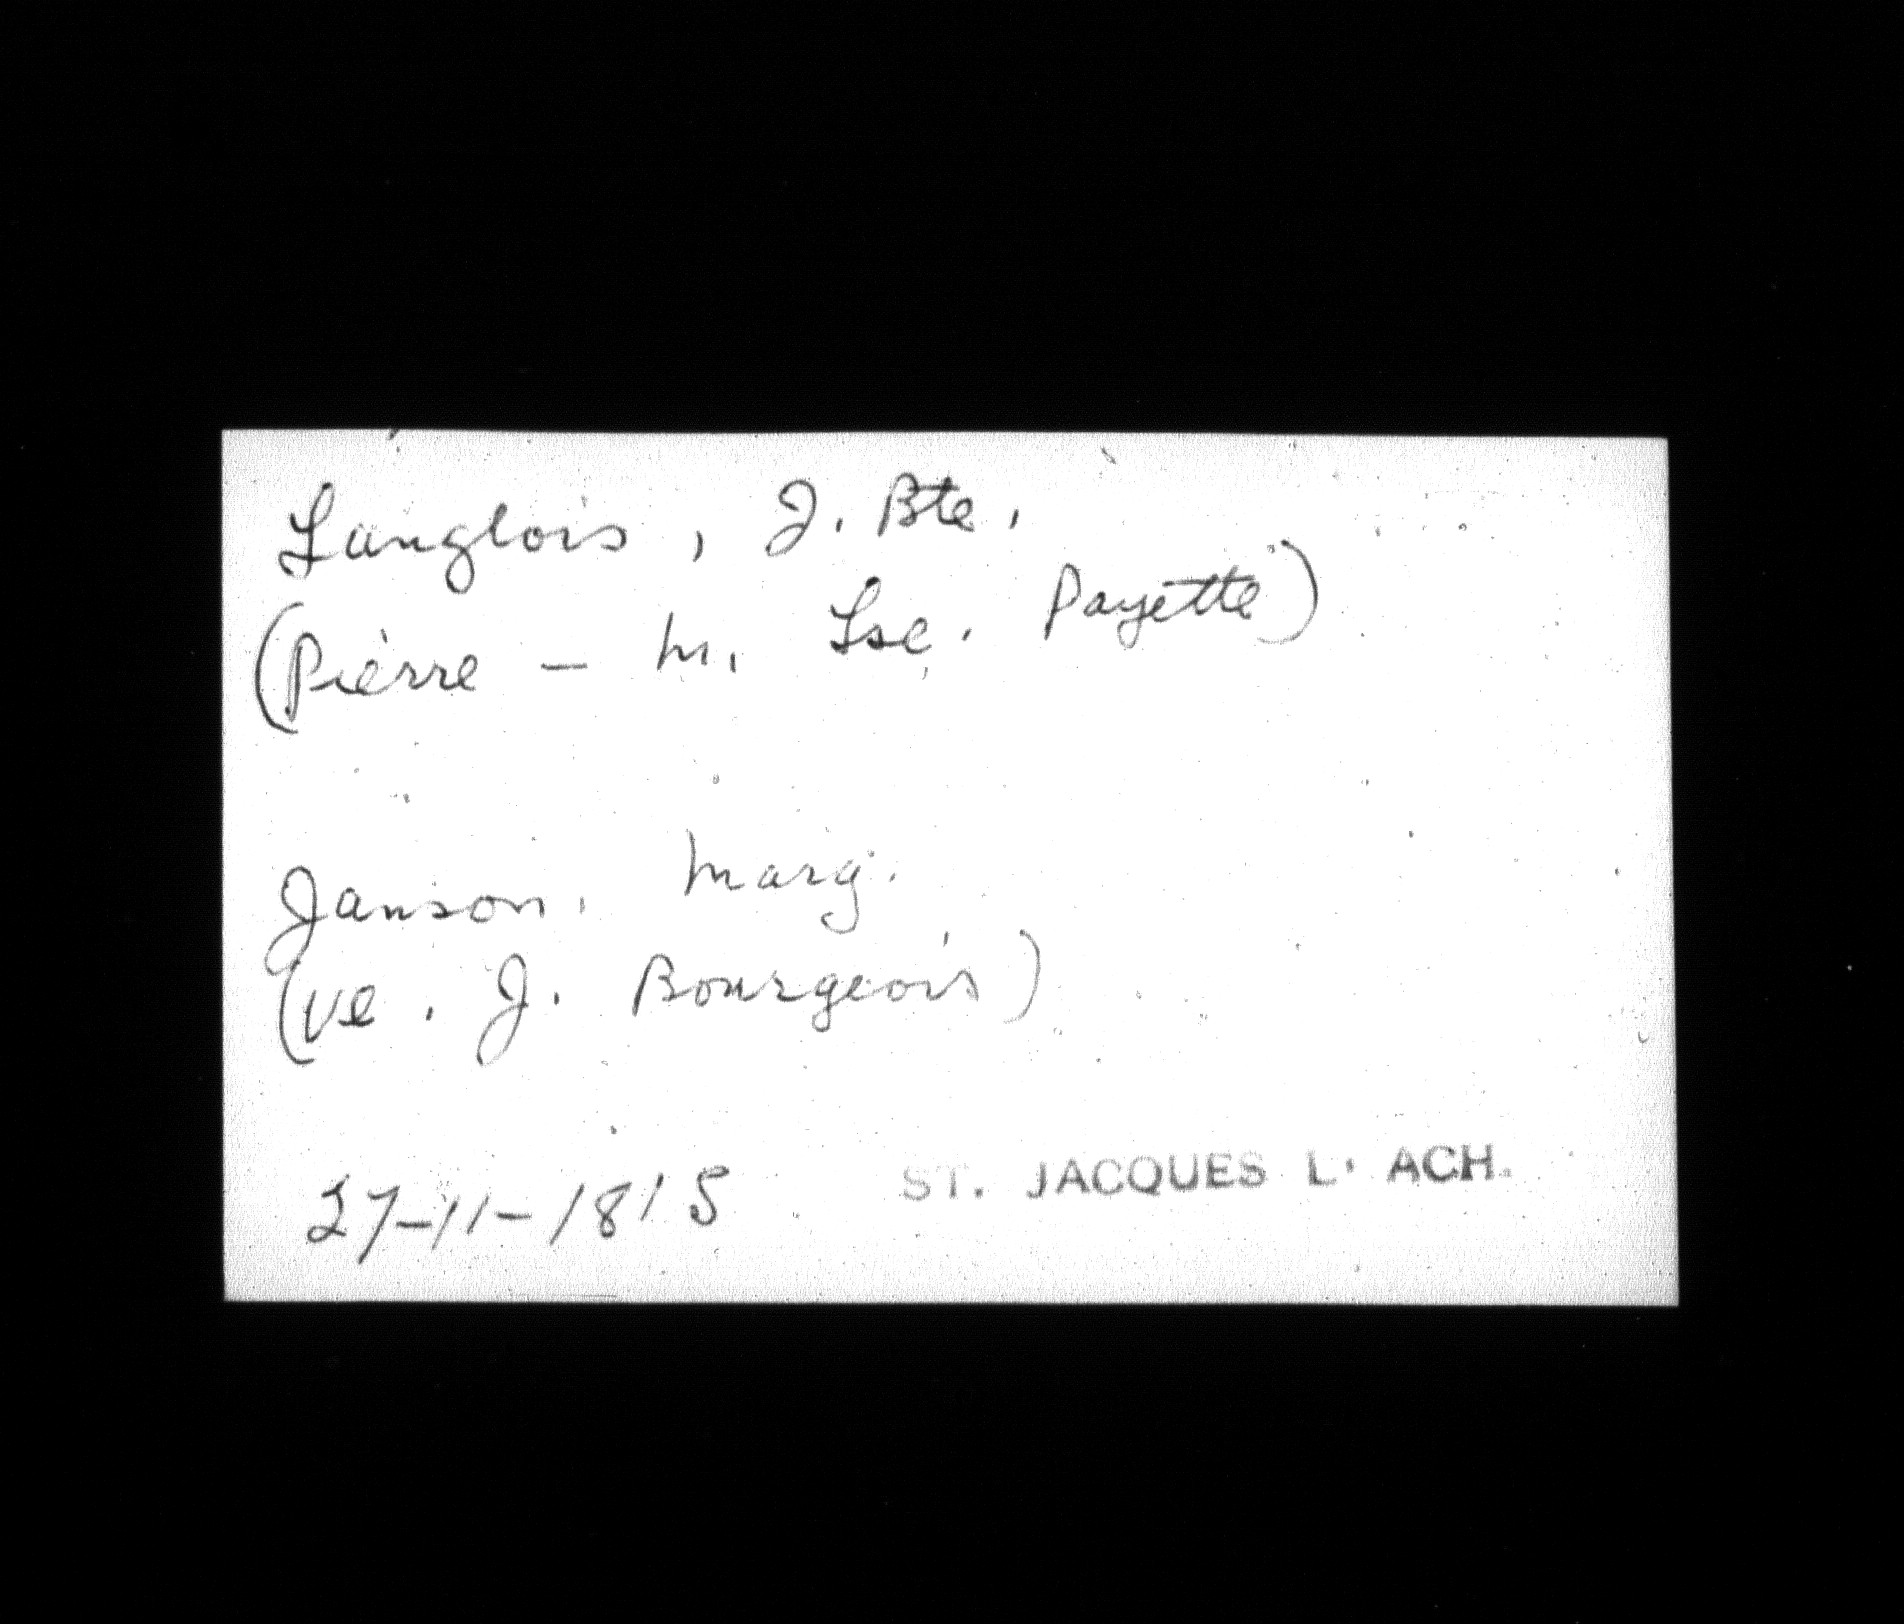 Langlois, J. Bte.
(Pierre - M. Lse. Payette)
Janson. Marg.
(ve. J. Bourgeois)
27-11-1815 ST. JACQUES L' ACH.